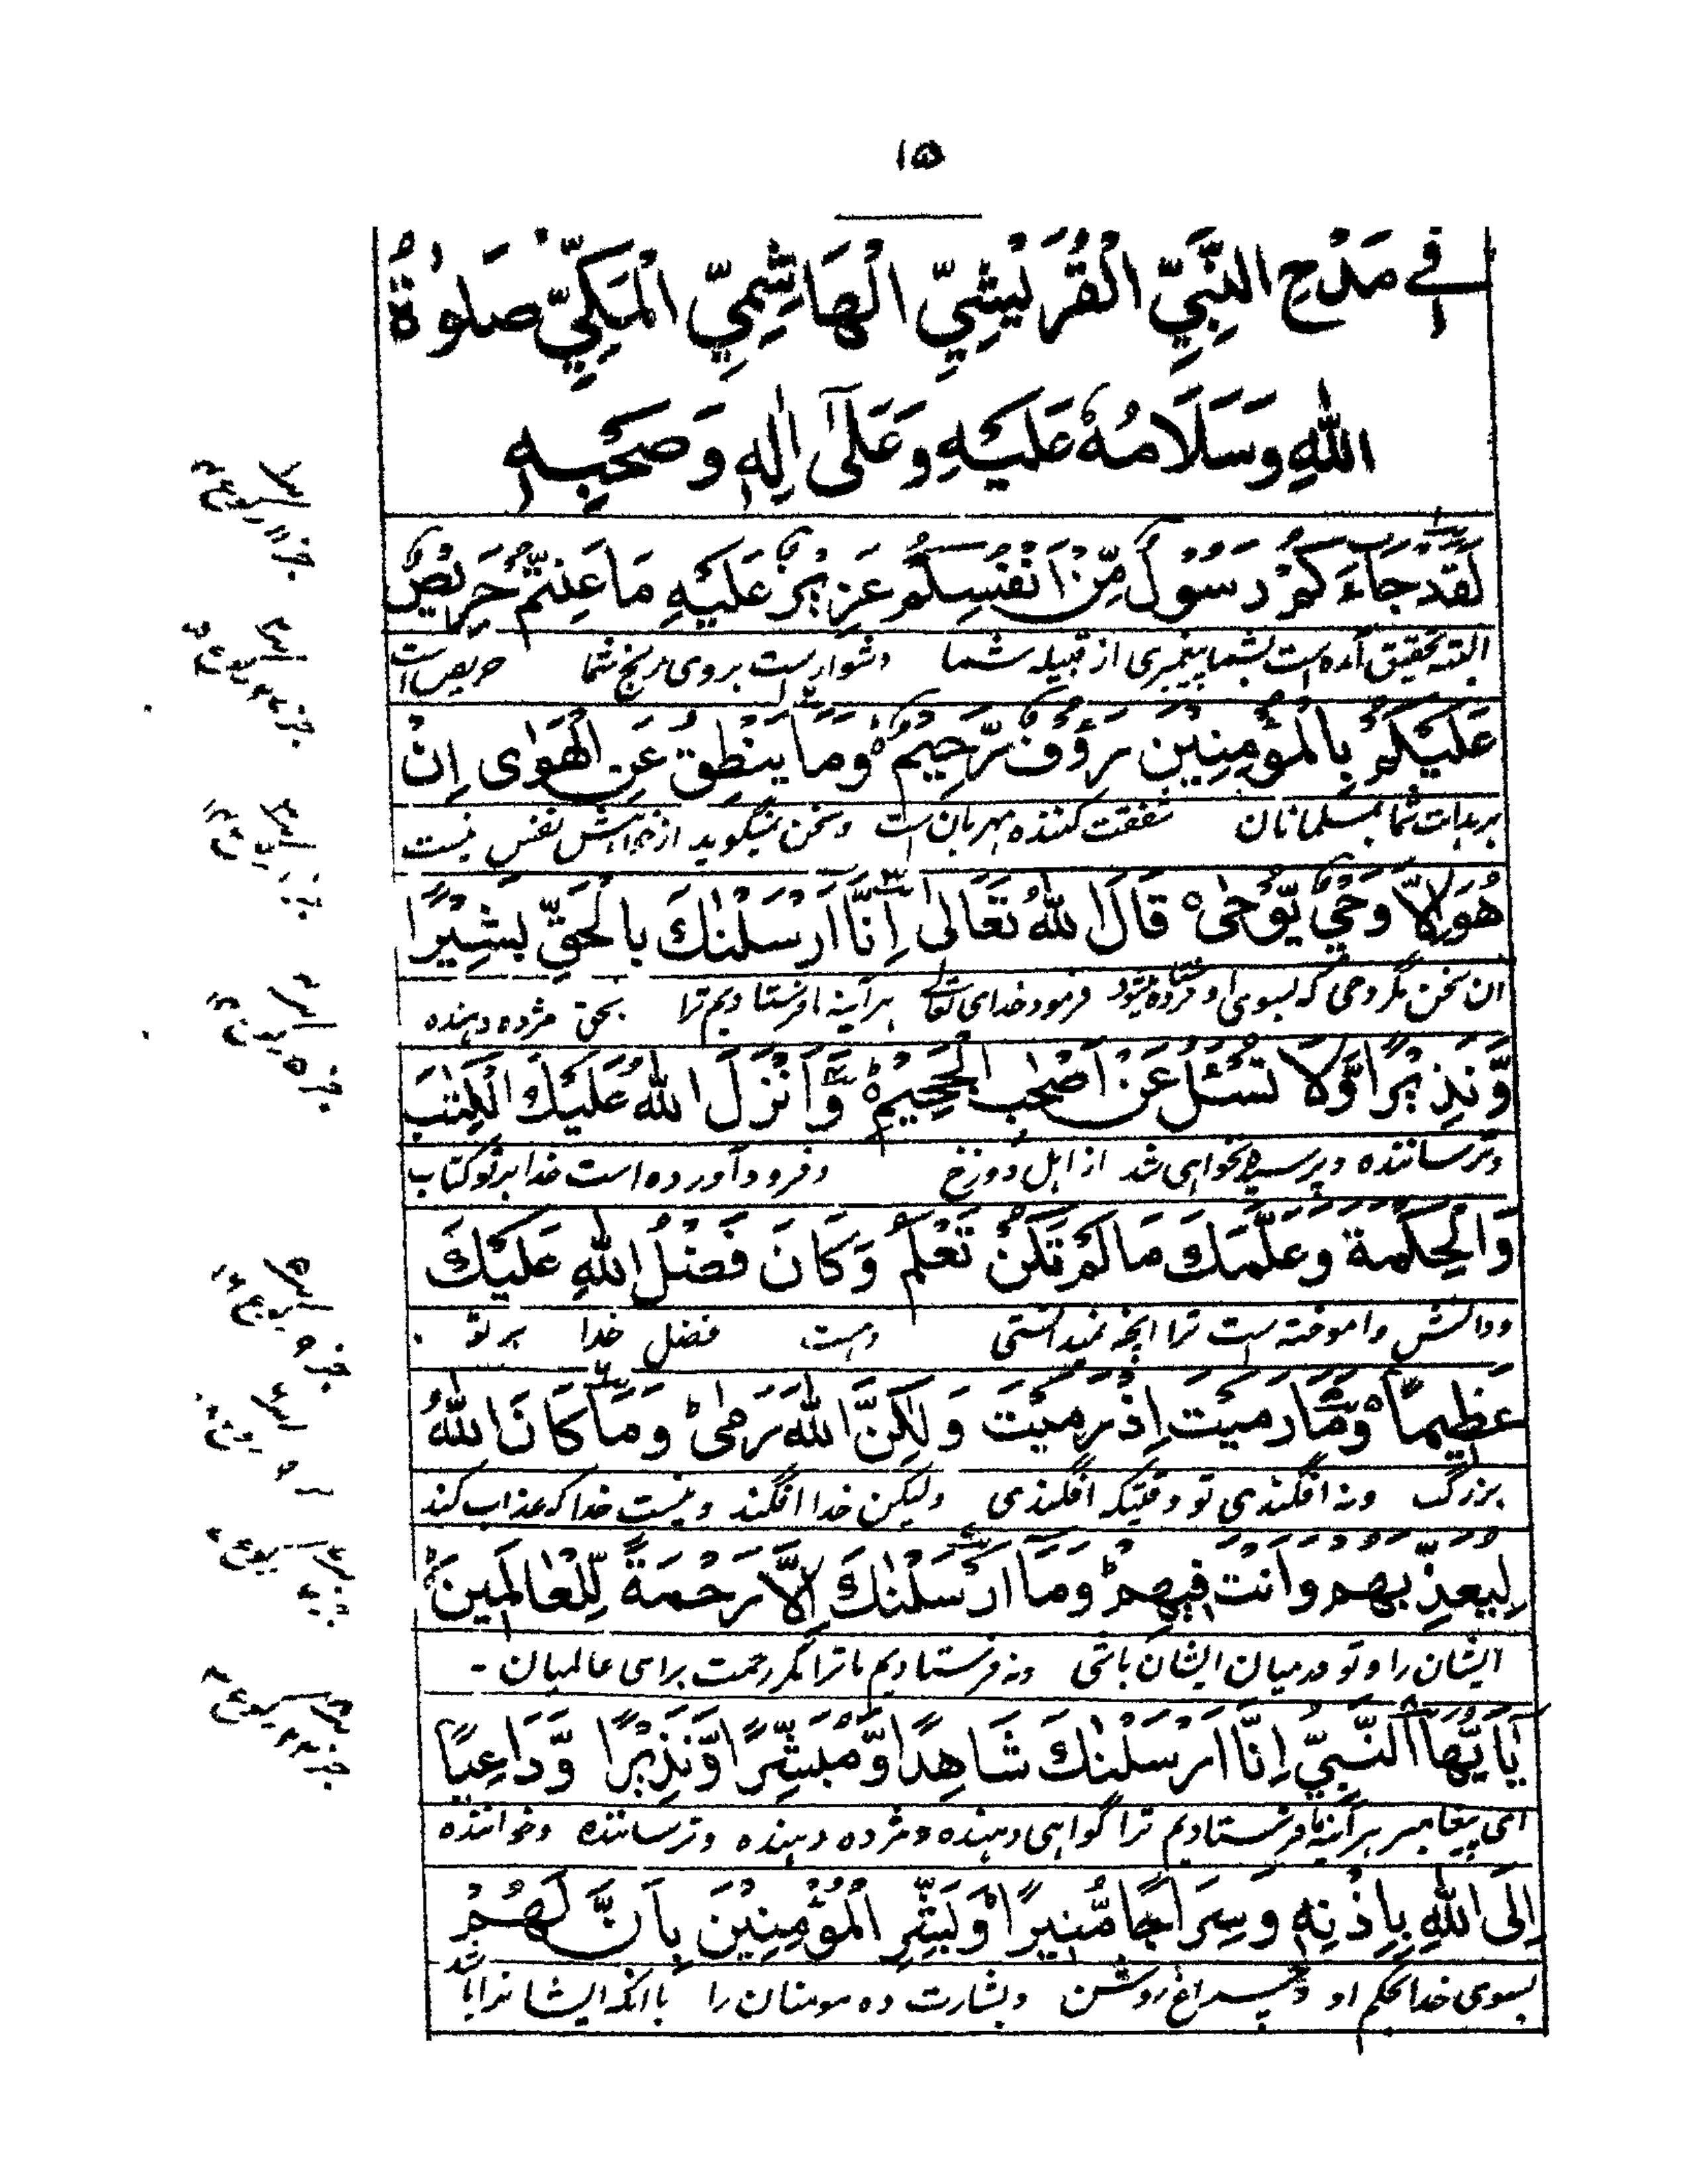 ۱۵
فِي مَدْحِ النَّبِيِّ الْقُرَيْشِيِّ الْهَاشِمِيِّ الْمَكِّيِّ صَلوٰةُ
اللهِ وَسَلَامُهٗ عَلَيْهِ وَعَلَىٰٓ اٰلِهٖ وَصَحْبِهٖ
لَقَدْ جَآءَكُمْ رَسُوْلٌ مِّنْ اَنْفُسِكُمْ عَزِيْزٌ عَلَيْهِ مَا عَنِتُّمْ حَرِيْصٌ
البته تحقیق آمده است بشما پیغمبری از قبیله شما دشوار است بروی رنج شما حریص است
عَلَيْكُمْ بِالْمُؤْمِنِيْنَ رَءُوْفٌ رَّحِيْمٌ ۝ وَمَا يَنْطِقُ عَنِ الْهَوٰى اِنْ
بر هدایت شما بمسلمانان شفقت کننده مهربان است و سخن نمیگوید از خواهش نفس نیست
هُوَ اِلَّا وَحْيٌ يُّوْحٰى ۝ قَالَ اللهُ تَعَالٰى اِنَّآ اَرْسَلْنٰكَ بِالْحَقِّ بَشِيْرًا
ان سخن مگر وحی که بسوی او فرموده میشود فرمود خدای تعالی هر آینه ما فرستادیم ترا بحق مژده دهنده
وَّنَذِيْرًا وَّلَا تُسْئَلُ عَنْ اَصْحٰبِ الْجَحِيْمِ ۝ وَاَنْزَلَ اللهُ عَلَيْكَ الْكِتٰبَ
و ترساننده و پرسیده نخواهی شد از اهل دوزخ و فرود آورده است خدا بر تو کتاب
وَالْحِكْمَةَ وَعَلَّمَكَ مَا لَمْ تَكُنْ تَعْلَمُ وَكَانَ فَضْلُ اللهِ عَلَيْكَ
و دانش و اموخته است ترا انچه نمیدانستی و هست فضل خدا بر تو
عَظِيْمًا ۝ وَمَا رَمَيْتَ اِذْ رَمَيْتَ وَلٰكِنَّ اللهَ رَمٰى وَمَا كَانَ اللهُ
بزرگ و نه افگندی تو وقتیکه افگندی ولیکن خدا افگند و نیست خدا که عذاب کند
لِيُعَذِّبَهُمْ وَاَنْتَ فِيْهِمْ وَمَآ اَرْسَلْنٰكَ اِلَّا رَحْمَةً لِّلْعَالَمِيْنَ
ایشان را و تو در میان ایشان باشی و نه فرستادیم ما ترا مگر رحمت برای عالمیان -
يٰٓاَيُّهَا النَّبِيُّ اِنَّآ اَرْسَلْنٰكَ شَاهِدًا وَّمُبَشِّرًا وَّنَذِيْرًا وَّدَاعِيًا
ای پیغامبر هر آینه ما فرستادیم ترا گواهی دهنده و مژده دهنده و ترساننده و خواننده
اِلَى اللهِ بِاِذْنِهٖ وَسِرَاجًا مُّنِيْرًا وَبَشِّرِ الْمُؤْمِنِيْنَ بِاَنَّ لَهُمْ
بسوی خدا بحکم او و چراغ روشن و بشارت ده مومنان را باانکه ایشانرا باشد